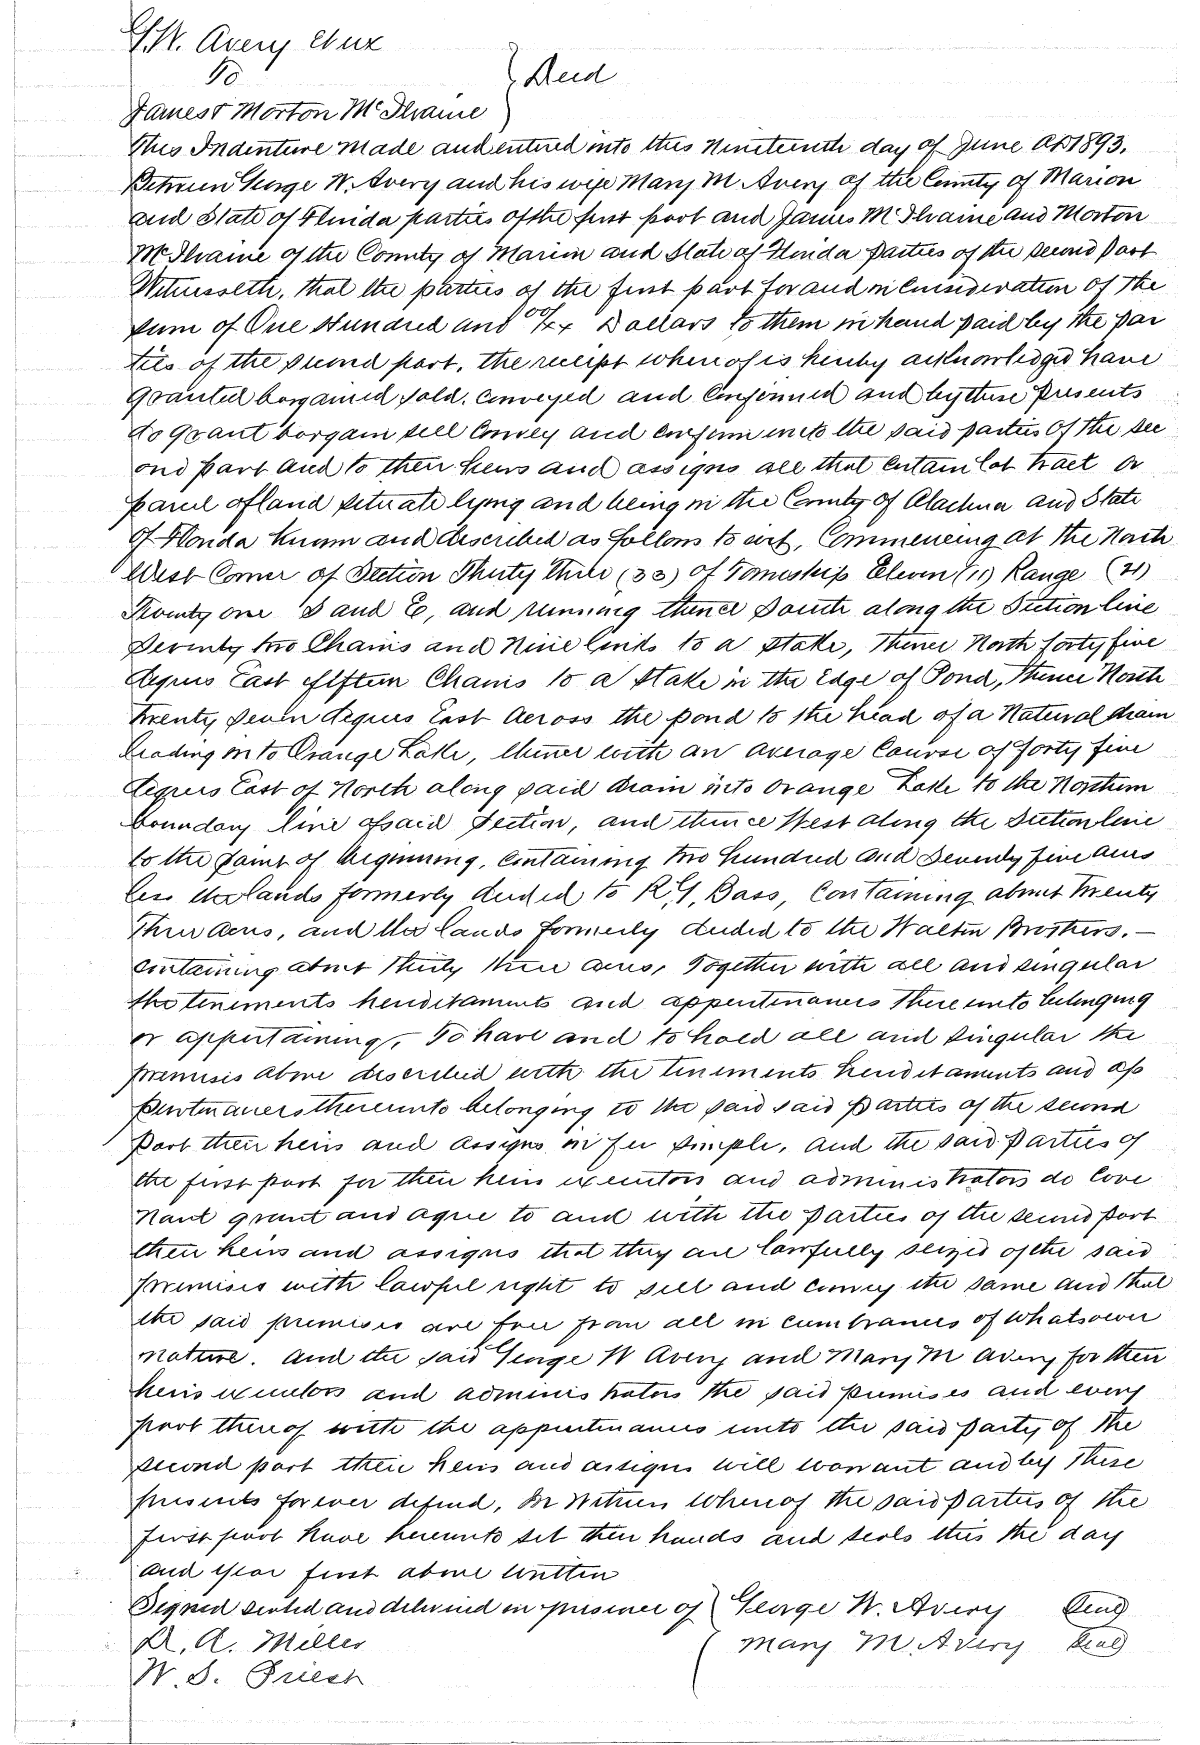 G.W. Avery et ux
To
Deed
James & Morton McIlvaine
This Indenture made and entered into this nineteenth day of June AD 1893.
Between George W. Avery and his wife Mary M Avery of the County of Marion
and State of Florida parties of the first part and James McIlvaine and Morton
McIlvaine of the County of Marion and State of Florida parties of the second part
Witnesseth, that the parties of the first part for and in Consideration of the
sum of One Hundred and 00/xx Dollars to them in hand paid by the par
ties of the second part, the receipt whereof is hereby acknowledged have
granted bargained sold. conveyed and confirmed and by these presents
do grant bargain sell convey and confirm unto the said parties of the sec
ond part and to their heirs and assigns all that certain lot tract or
parcel of land situate lying and being in the County of Alachua and State
of Florida known and described as follows to wit, Commencing at the North
West Corner of Section Thirty three (33) of Township Eleven (11) Range (21)
Twenty one S and E, and running thence South along the Section line
Seventy two Chains and Nine links to a stake, thence North forty five
degrees East fifteen Chains to a stake in the Edge of Pond, thence North
twenty seven degrees East across the pond to the head of a Natural drain
leading into Orange Lake, thence with an average Course of forty five
degrees East of North along said drain into Orange Lake to the Northern
boundary line of said Section, and thence West along the Section line
to the point of beginning, Containing two hundred and Seventy five acres
less the lands formerly deeded to R.G. Bass, Containing about twenty
three acres, and the lands formerly deeded to the Walton Brothers. —
containing about thirty three acres, Together with all and singular
the tenements hereditaments and appurtenances thereunto belonging
or appertaining, To have and to hold all and singular the
premises above described with the tenements hereditaments and ap
purtenances thereunto belonging to the said said parties of the second
part their heirs and assigns in fee simple, and the said parties of
the first part for their heirs executors and administrators do cove
nant grant and agree to and with the parties of the second part
their heirs and assigns that they are lawfully seized of the said
premises with lawful right to sell and convey the same and that
the said premises are free from all incumbrances of whatsoever
nature. and the said George W Avery and Mary M Avery for their
heirs executors and administrators the said premises and every
part thereof with the appurtenances unto the said party of the
second part their heirs and assigns will warrant and by these
presents forever defend, In Witness Whereof the said parties of the
first part have hereunto set their hands and seals this the day
and year first above written
Signed sealed and delivered in presence of George W. Avery Seal
D. A. Miller Mary M. Avery Seal
W. S. Priest